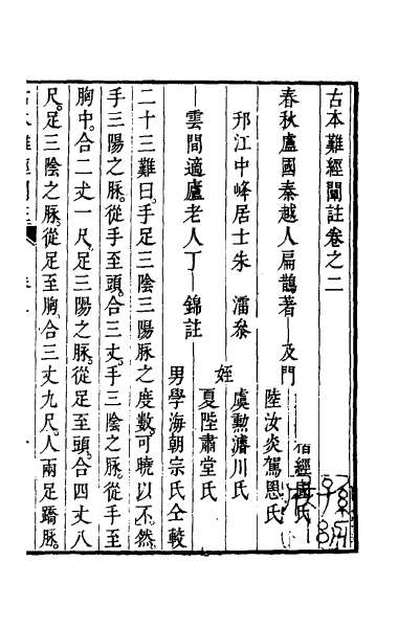 古本難經闡註卷之二
春秋盧國秦越人扁鵲著
及門
經國氏
陸汝炎駕恩氏
邗江中峰居士朱㵎叅
姪
虞勲濬川氏
夏陛肅堂氏
雲間適廬老人丁錦註
男學海朝宗氏仝較
二十三難曰手足三陰三陽脉之度數可曉以不然
手三陽之脉從手至頭合三丈手三陰之脉從手至
胸中合二丈一尺足三陽之脉從足至頭合四丈八
尺足三陰之脉從足至胸合三丈九尺人兩足蹻脉